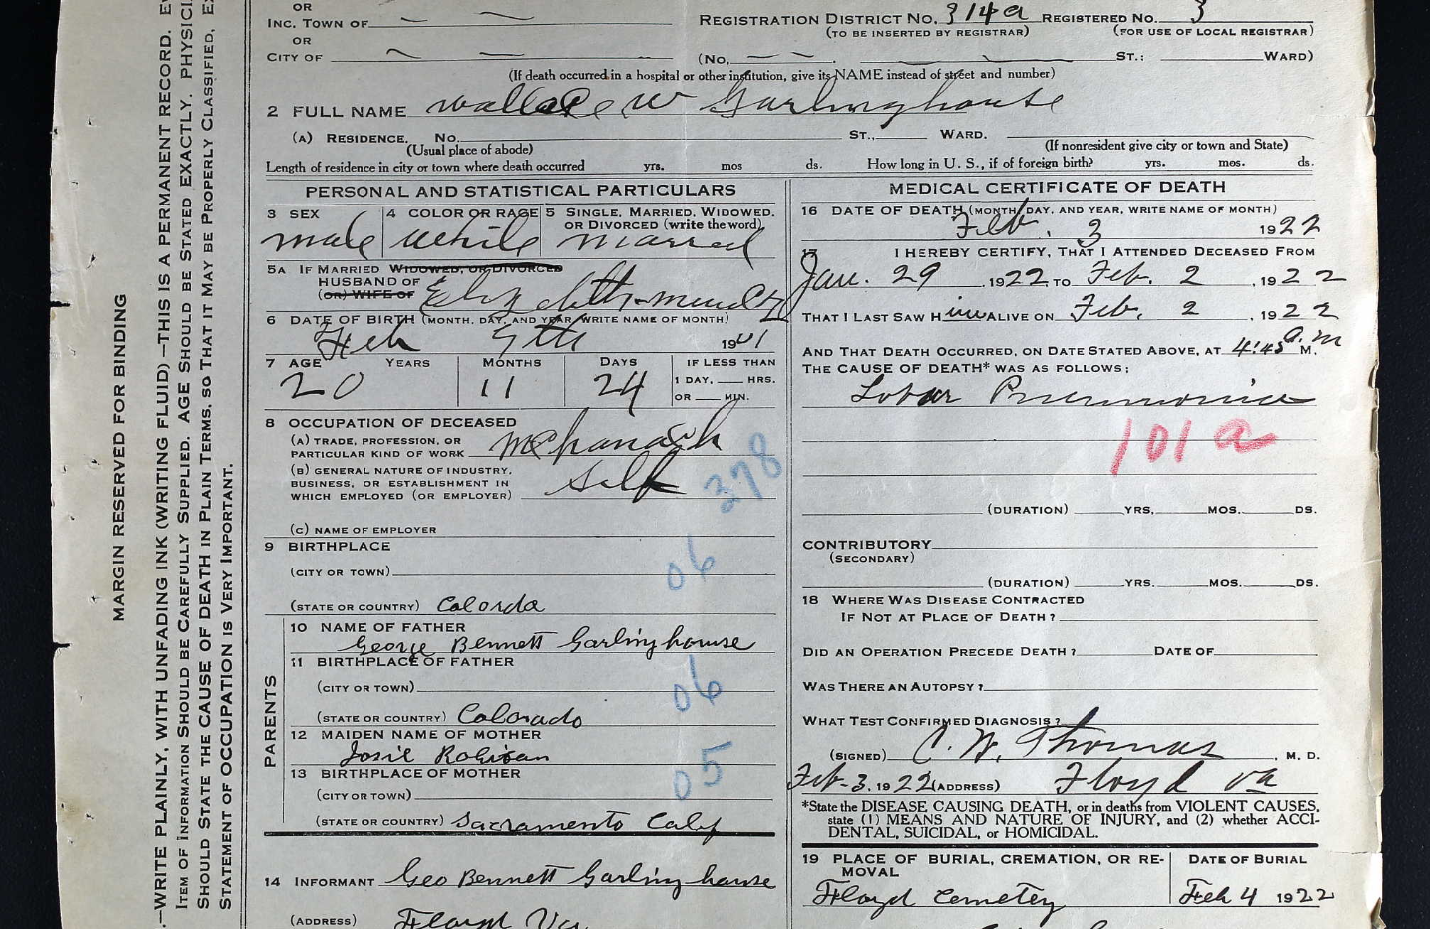 OR
INC. TOWN OF
REGISTRATION DISTRICT NO. 314a REGISTERED NO. 3
OR
(TO BE INSERTED BY REGISTRAR) (FOR USE OF LOCAL REGISTRAR)
CITY OF (No. ST.: WARD)
(If death occurred in a hospital or other institution, give its NAME instead of street and number)
2 FULL NAME Wallace W Garlinghouse
(A) RESIDENCE. No. ST., WARD.
(Usual place of abode) (If nonresident give city or town and State)
Length of residence in city or town where death occurred yrs. mos ds. How long in U. S., if of foreign birth? yrs. mos. ds.
PERSONAL AND STATISTICAL PARTICULARS
3 SEX 4 COLOR OR RACE 5 SINGLE, MARRIED, WIDOWED, OR DIVORCED (write the word)
male white married
5A IF MARRIED WIDOWED, OR DIVORCED
HUSBAND OF
(OR) WIFE OF Elizabeth
6 DATE OF BIRTH (MONTH, DAY, AND YEAR, WRITE NAME OF MONTH)
Feb 9th 1901
7 AGE YEARS MONTHS DAYS IF LESS THAN
20 11 24 1 DAY, HRS.
OR MIN.
8 OCCUPATION OF DECEASED
(A) TRADE, PROFESSION, OR
PARTICULAR KIND OF WORK
(B) GENERAL NATURE OF INDUSTRY,
BUSINESS, OR ESTABLISHMENT IN
WHICH EMPLOYED (OR EMPLOYER) Self
378
(C) NAME OF EMPLOYER
9 BIRTHPLACE
(CITY OR TOWN) 06
(STATE OR COUNTRY) Colorda
PARENTS
10 NAME OF FATHER
George Bennett Garlinghouse
11 BIRTHPLACE OF FATHER
(CITY OR TOWN) 06
(STATE OR COUNTRY) Colorado
12 MAIDEN NAME OF MOTHER
Josie
13 BIRTHPLACE OF MOTHER
(CITY OR TOWN) 05
(STATE OR COUNTRY) Sacramento Calif
14 INFORMANT Geo Bennett Garlinghouse
(ADDRESS) Floyd Va
MEDICAL CERTIFICATE OF DEATH
16 DATE OF DEATH (MONTH, DAY, AND YEAR, WRITE NAME OF MONTH)
Feb. 3 1922
17 I HEREBY CERTIFY, THAT I ATTENDED DECEASED FROM
Jan. 29, 1922, TO Feb. 2, 1922
THAT I LAST SAW Him ALIVE ON Feb. 2, 1922
AND THAT DEATH OCCURRED, ON DATE STATED ABOVE, AT 4:45 a.m M.
THE CAUSE OF DEATH* WAS AS FOLLOWS:
Lobar Pneumonia
101a
(DURATION) YRS. MOS. DS.
CONTRIBUTORY
(SECONDARY)
(DURATION) YRS. MOS. DS.
18 WHERE WAS DISEASE CONTRACTED
IF NOT AT PLACE OF DEATH?
DID AN OPERATION PRECEDE DEATH? DATE OF
WAS THERE AN AUTOPSY?
WHAT TEST CONFIRMED DIAGNOSIS?
(SIGNED) C. W. Thomas, M. D.
Feb-3, 1922 (ADDRESS) Floyd Va
*State the DISEASE CAUSING DEATH, or in deaths from VIOLENT CAUSES,
state (1) MEANS AND NATURE OF INJURY, and (2) whether ACCI-
DENTAL, SUICIDAL, or HOMICIDAL.
19 PLACE OF BURIAL, CREMATION, OR RE-
MOVAL DATE OF BURIAL
Floyd Cemetey Feb 4 1922
MARGIN RESERVED FOR BINDING
.—WRITE PLAINLY, WITH UNFADING INK (WRITING FLUID)—THIS IS A PERMANENT RECORD. EV
ITEM OF INFORMATION SHOULD BE CAREFULLY SUPPLIED. AGE SHOULD BE STATED EXACTLY. PHYSICI
SHOULD STATE THE CAUSE OF DEATH IN PLAIN TERMS, SO THAT IT MAY BE PROPERLY CLASSIFIED. EX
STATEMENT OF OCCUPATION IS VERY IMPORTANT.